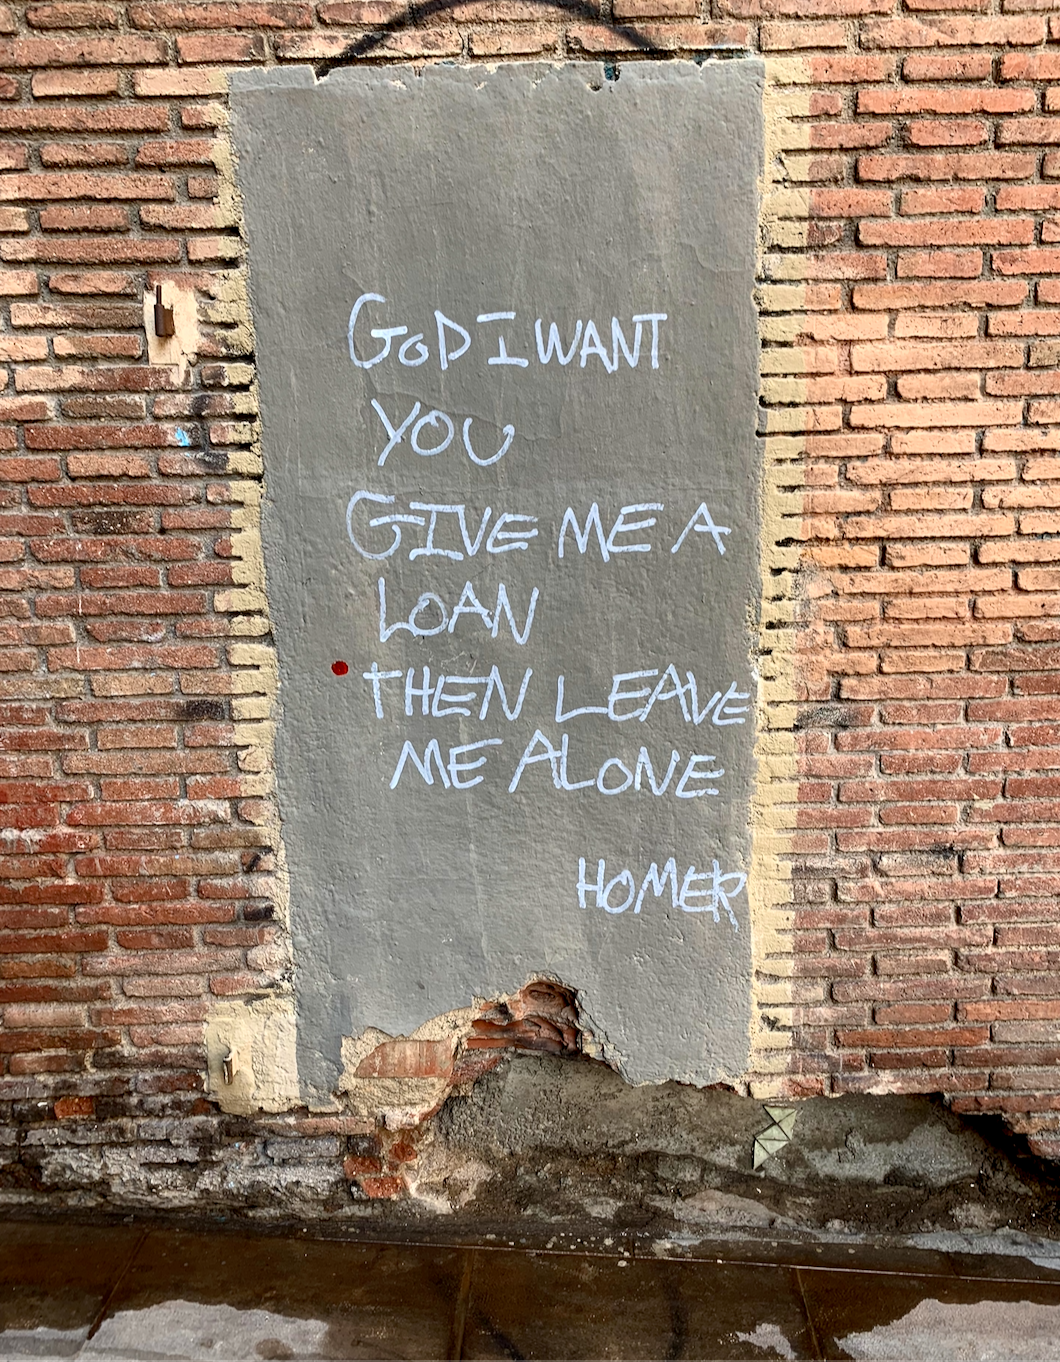 GOD I WANT
YOU
GIVE ME A
LOAN
THEN LEAVE
ME ALONE
HOMER